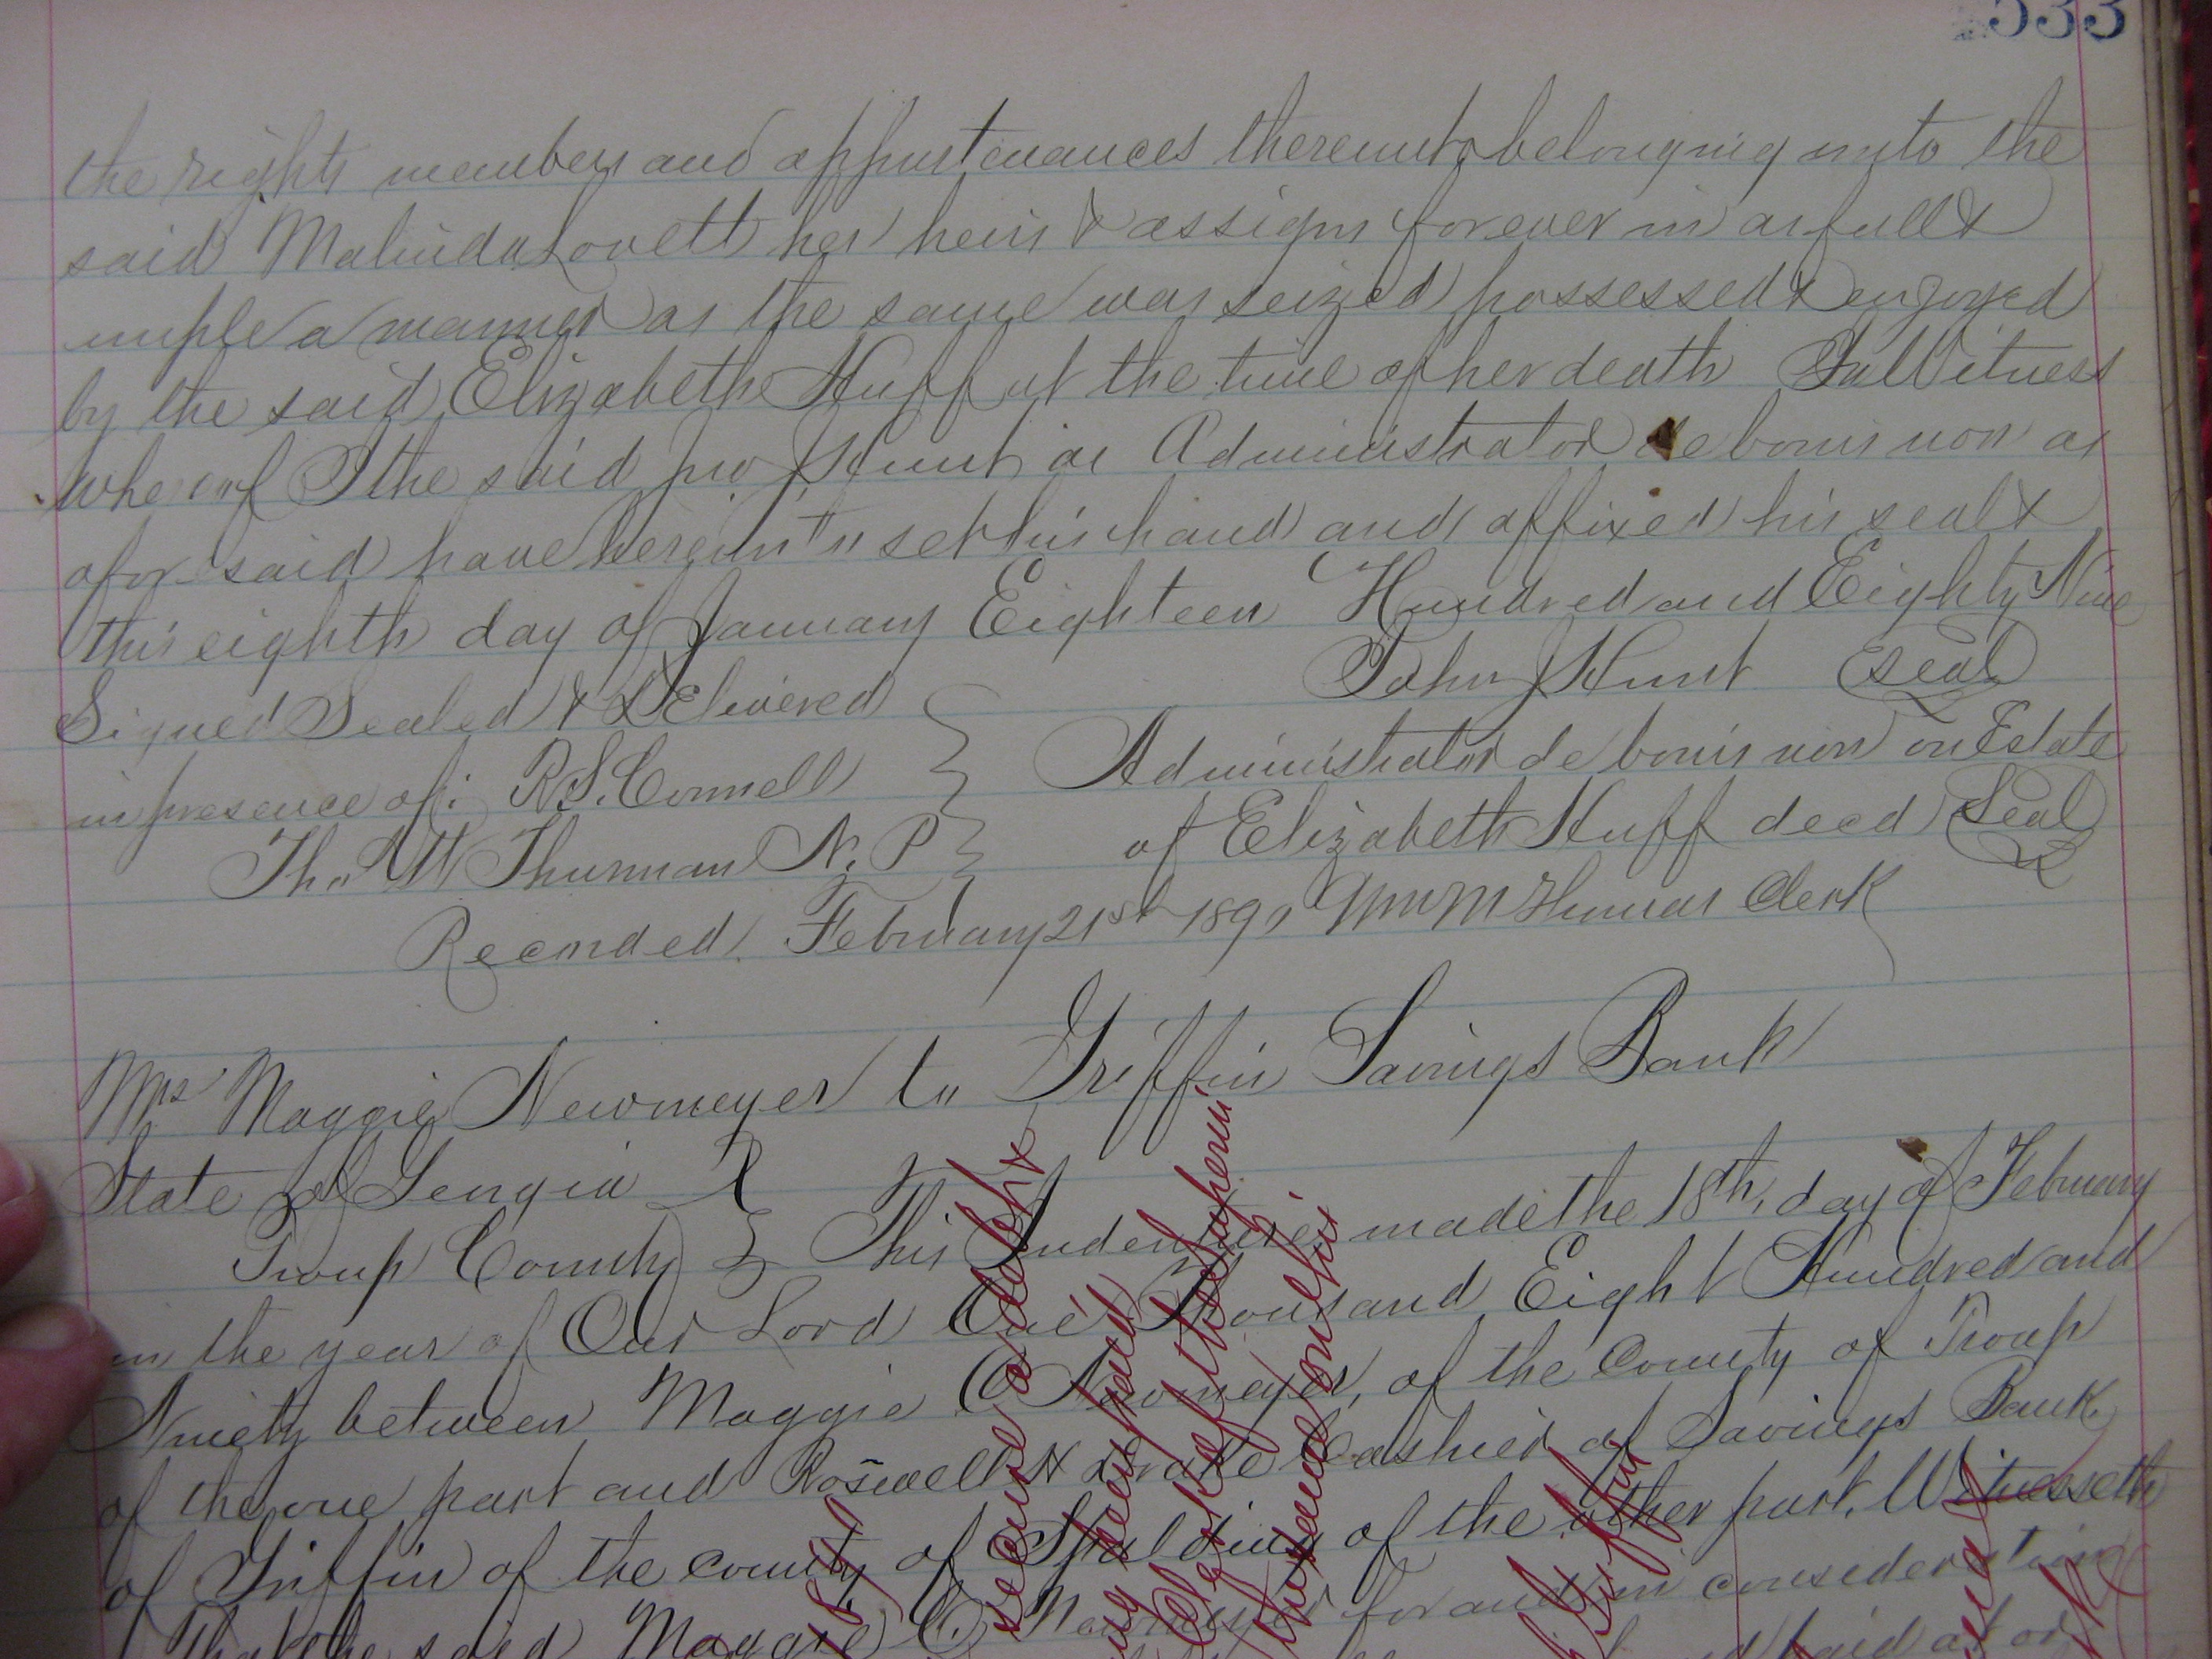 533
the rights members and appurtenances thereunto belonging unto the
said Malinda Lovett her heirs & assigns forever in as full &
ample a manner as the same was seized possessed & enjoyed
by the said Elizabeth Huff at the time of her death In Witness
whereof I the said Jno J Hunt as Administrator de bonis non as
afor said have hereunto set his hand and affixed his seal &
this eighth day of January Eighteen Hundred and Eighty Nine
Signed Sealed & Delivered John J Hunt Seal
in presence of: R.S. Connell Administrator de bonis non on Estate
Thos W Thurman N.P of Elizabeth Huff decd Seal
Recorded. February 21st 1890 Wm M Thomas Clerk
Mrs Maggie Newmeyer to Griffin Savings Bank
State of Georgia
Troup County This Indenture made the 18th, day of February
in the year of Our Lord One Thousand Eight Hundred and
Ninety between Maggie C Newmeyer, of the County of Troup
of the one part and Roswell H Drake Cashier of Savings Bank
of Griffin of the county of Spalding of the other part. Witnesseth
That the said Maggie C. Newmeyer for and in consideration
paid at or
secure a debt &
been paid
Clerk of the Superior
this